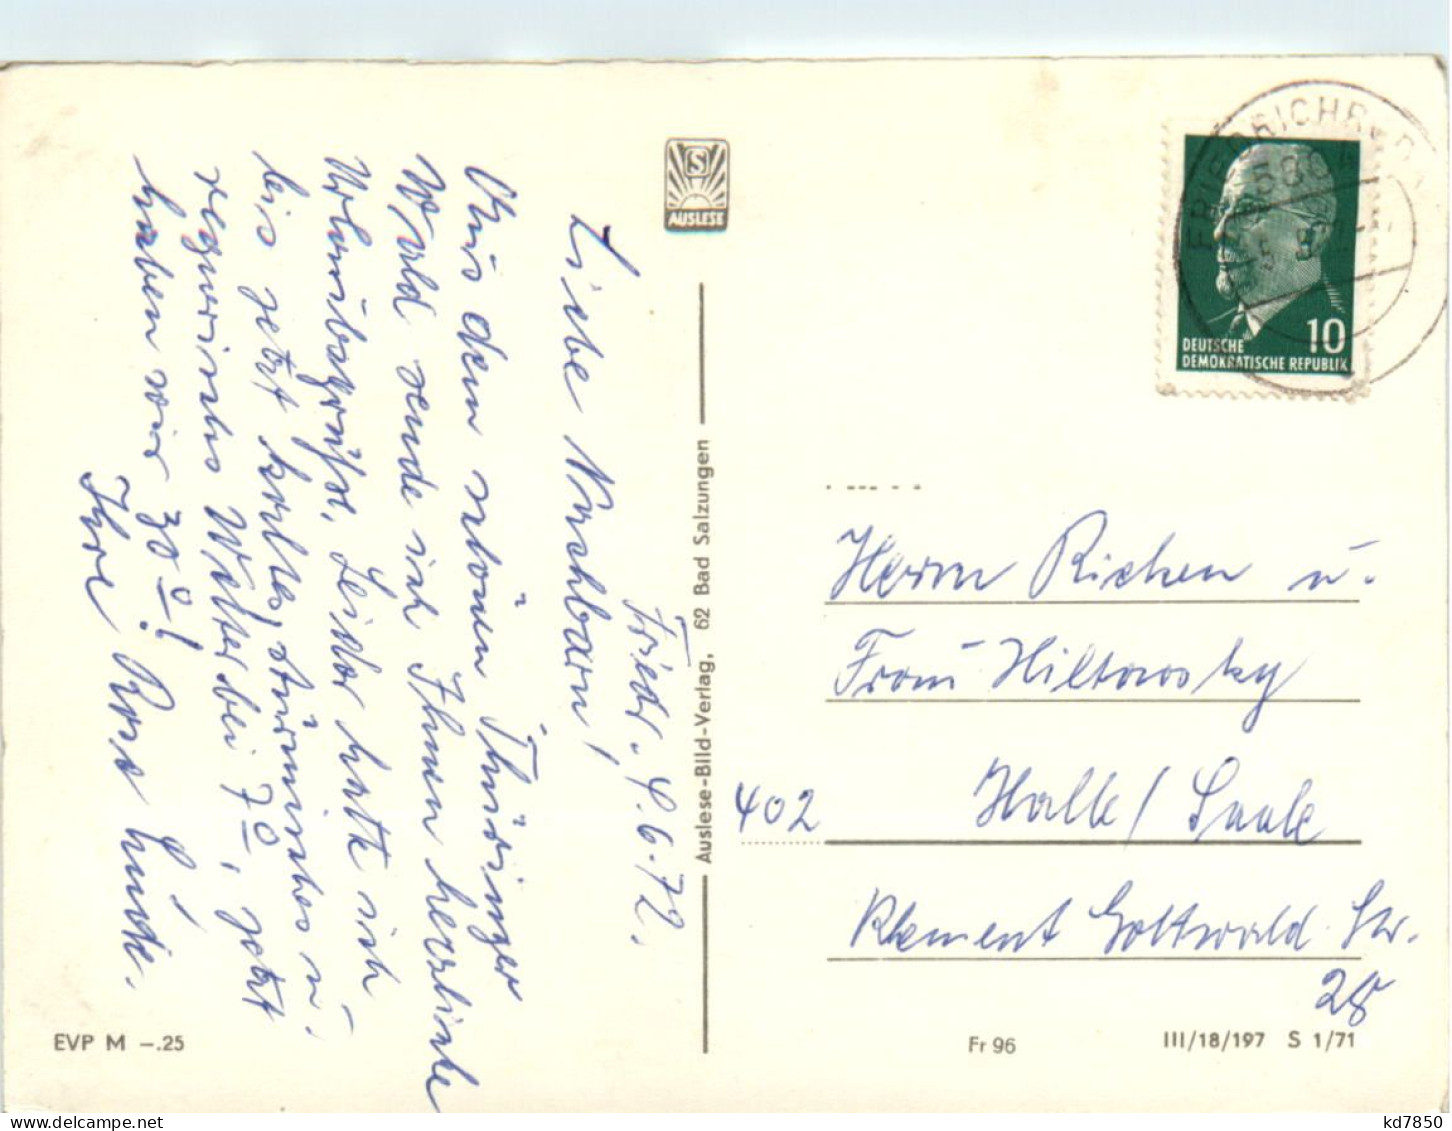 Friedr. 4.6.72.
Liebe Nachbarn!
Aus dem schönen Thüringer
Wald sende ich Ihnen herzliche
Urlaubsgrüße. Leider hatte ich
bis jetzt kaltes, stürmisches u.
regnerisches Wetter bei 7°, jetzt
haben wir 30°!
Ihre Rosa
S
AUSLESE
Auslese-Bild-Verlag, 62 Bad Salzungen
EVP M –.25
10
DEUTSCHE
DEMOKRATISCHE REPUBLIK
Herrn Richen u.
Frau Hiltawsky
402 Halle/Saale
Klement Gottwald Str.
28
Fr 96
III/18/197 S 1/71
kd7850